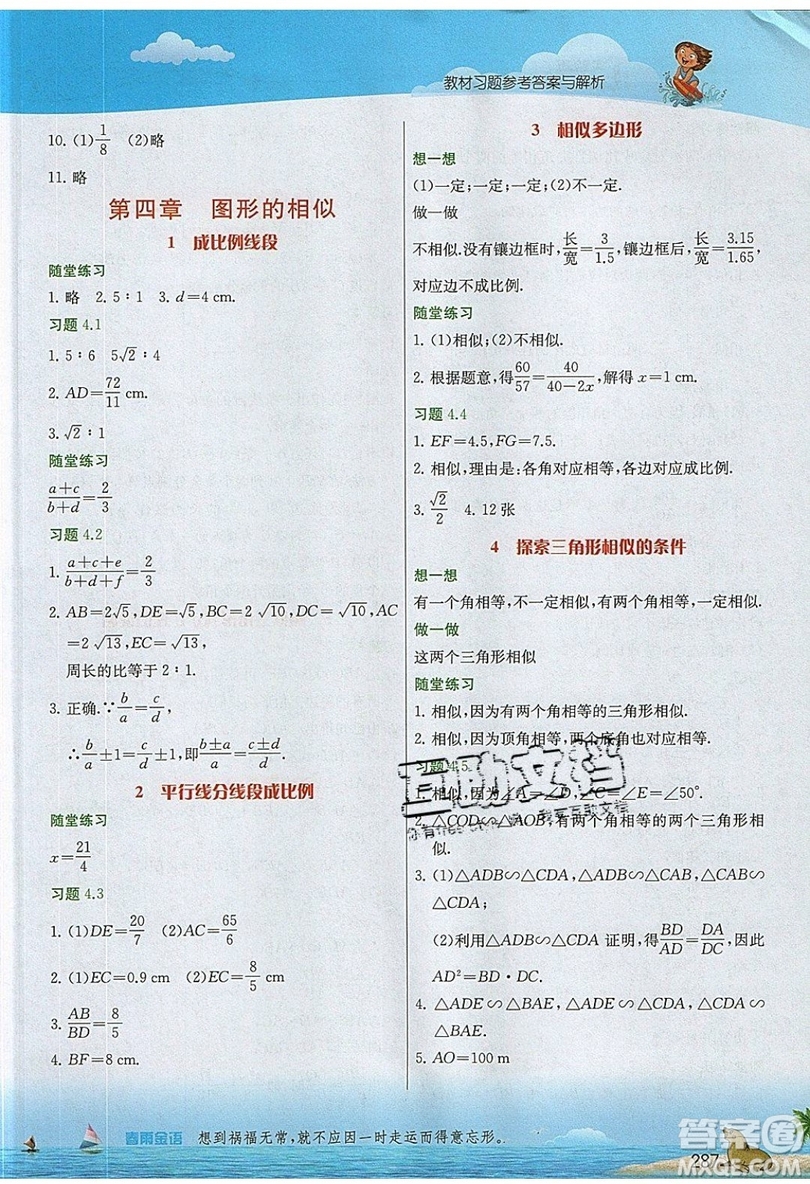 教材习题参考答案与解析
10. (1)1/8 (2)略
11. 略
第四章 图形的相似
1 成比例线段
随堂练习
1. 略 2. 5∶1 3. d=4 cm.
习题 4.1
1. 5∶6 5√2∶4
2. AD=72/11 cm.
3. √2∶1
随堂练习
(a+c)/(b+d)=2/3
习题 4.2
1. (a+c+e)/(b+d+f)=2/3
2. AB=2√5,DE=√5,BC=2√10,DC=√10,AC
=2√13,EC=√13,
周长的比等于 2∶1.
3. 正确.∵b/a=c/d,
∴b/a±1=c/d±1,即(b±a)/a=(c±d)/d.
2 平行线分线段成比例
随堂练习
x=21/4
习题 4.3
1. (1)DE=20/7 (2)AC=65/6
2. (1)EC=0.9 cm (2)EC=8/5 cm
3. AB/BD=8/5
4. BF=8 cm.
3 相似多边形
想一想
(1)一定;一定;一定;(2)不一定.
做一做
不相似.没有镶边框时,长/宽=3/1.5,镶边框后,长/宽=3.15/1.65,
对应边不成比例.
随堂练习
1. (1)相似;(2)不相似.
2. 根据题意,得60/57=40/(40-2x),解得 x=1 cm.
习题 4.4
1. EF=4.5,FG=7.5.
2. 相似,理由是:各角对应相等,各边对应成比例.
3. √2/2 4. 12 张
4 探索三角形相似的条件
想一想
有一个角相等,不一定相似,有两个角相等,一定相似.
做一做
这两个三角形相似
随堂练习
1. 相似,因为有两个角相等的三角形相似.
2. 相似,因为顶角相等,两个底角也对应相等.
习题 4.5
1. 相似,因为∠B=∠C=∠E=∠50°.
2. △COD∽△AOB,有两个角相等的两个三角形相
似.
3. (1)△ADB∽△CDA,△ADB∽△CDA,△ADB∽
△CDA;
(2)利用△ADB∽△CDA 证明,得BD/AD=DA/DC,
AD²=BD·CD.
4. △ADE∽△BAE,△ADE∽△CDA,△CDA∽
△BAE.
5. AO=100 m
互助文档
春雨金语 想到祸福无常,就不应因一时走运而得意忘形。
287
答案圈
MXQE.COM